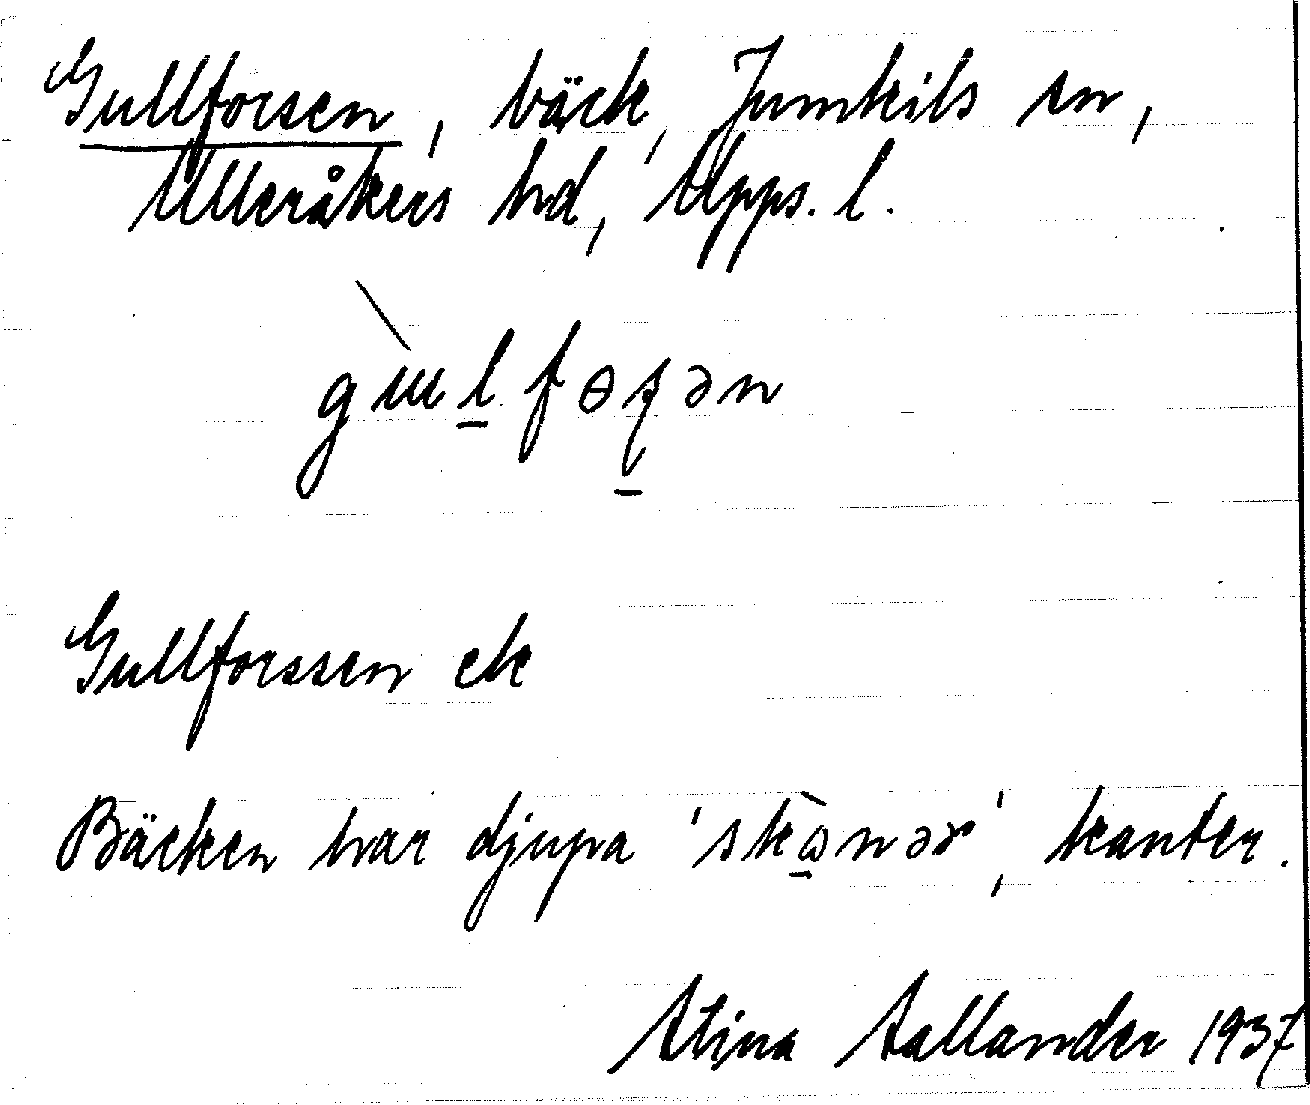 Gullforsen, bäck, Jumkils sn,
Ulleråkers hd, Upps. l.
Gullforssen ek
Bäcken har djupa 'skɷ̀nər', kanter.
Stina Sallander 1937